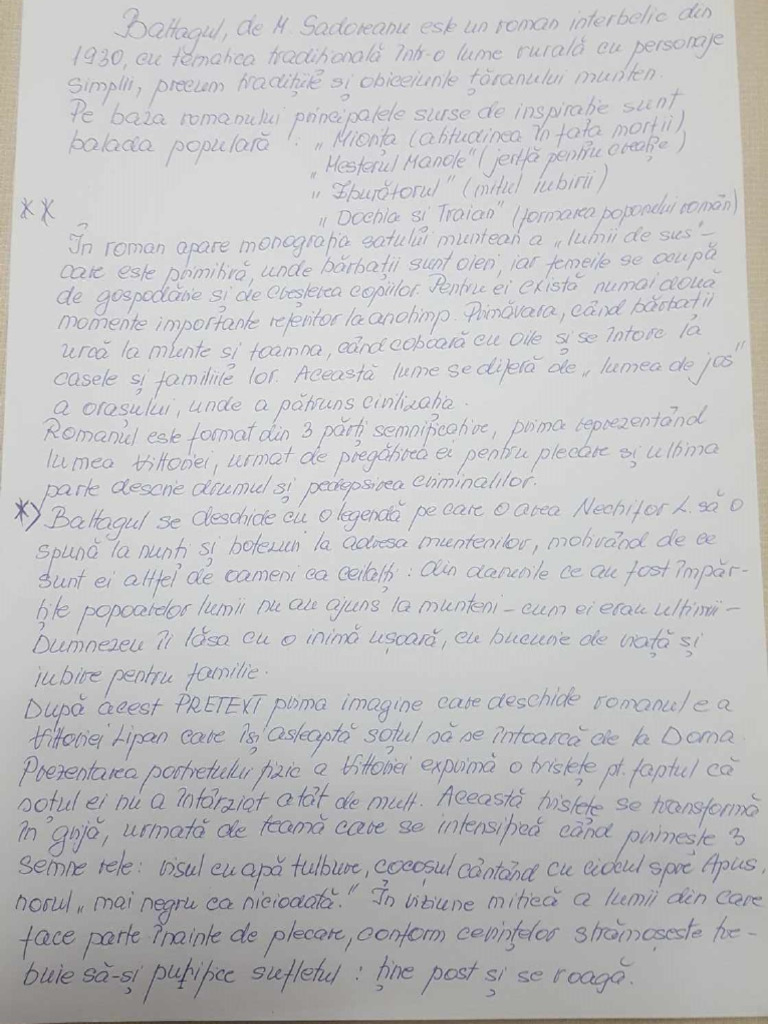 Baltagul, de M. Sadoveanu este un roman interbelic din
1930, cu tematica tradițională într-o lume rurală cu personaje
simplii, precum tradițiile și obiceiurile țăranului muntean.
Pe baza romanului principalele surse de inspirație sunt
balada populară : „Miorița (atitudinea în fața morții)
„Meșterul Manole" (jertfă pentru creație)
„Zburătorul" (mitul iubirii)
** „Dochia si Traian" (formarea poporului român)
În roman apare monografia satului muntean a „lumii de sus"-
care este primitivă, unde bărbații sunt oieri, iar femeile se ocupă
de gospodărie și de creșterea copiilor. Pentru ei există numai două
momente importante referitor la anotimp. Primăvara, când bărbații
urcă la munte si toamna, când coboară cu oile și se întorc la
casele și familiile lor. Această lume se diferă de „lumea de jos"
a orașului, unde a pătruns civilizatia.
Romanul este format din 3 părți semnificative, prima reprezentând
lumea Vittoriei, urmat de pregătirea ei pentru plecare și ultima
parte descrie drumul și pedepsirea criminalilor.
*) Baltagul se deschide cu o legendă pe care o avea Nechifor L. să o
spună la nunți și botezuri la adresa muntenilor, motivând de ce
sunt ei altfel de oameni ca ceilalți: din darurile ce au fost împăr-
țite popoarelor lumii nu au ajuns la munteni - cum ei erau ultimii -
Dumnezeu îi lăsa cu o inimă ușoară, cu bucurie de viață și
iubire pentru familie.
După acest PRETEXT prima imagine care deschide romanul e a
Vittoriei Lipan care își asteaptă soțul să se întoarcă de la Dorna.
Prezentarea portretului fizic a Vittoriei exprimă o tristețe pt. faptul că
soțul ei nu a întârziat atât de mult. Această tristețe se transformă
în grijă, urmată de teamă care se intensifică când primește 3
semne rele: visul cu apă tulbure, cocoșul cântând cu ciocul spre Apus,
norul „mai negru ca niciodată." În viziune mitică a lumii din care
face parte înainte de plecare, conform cerințelor strămoșeste tre-
buie să-și purifice sufletul : ține post și se roagă.